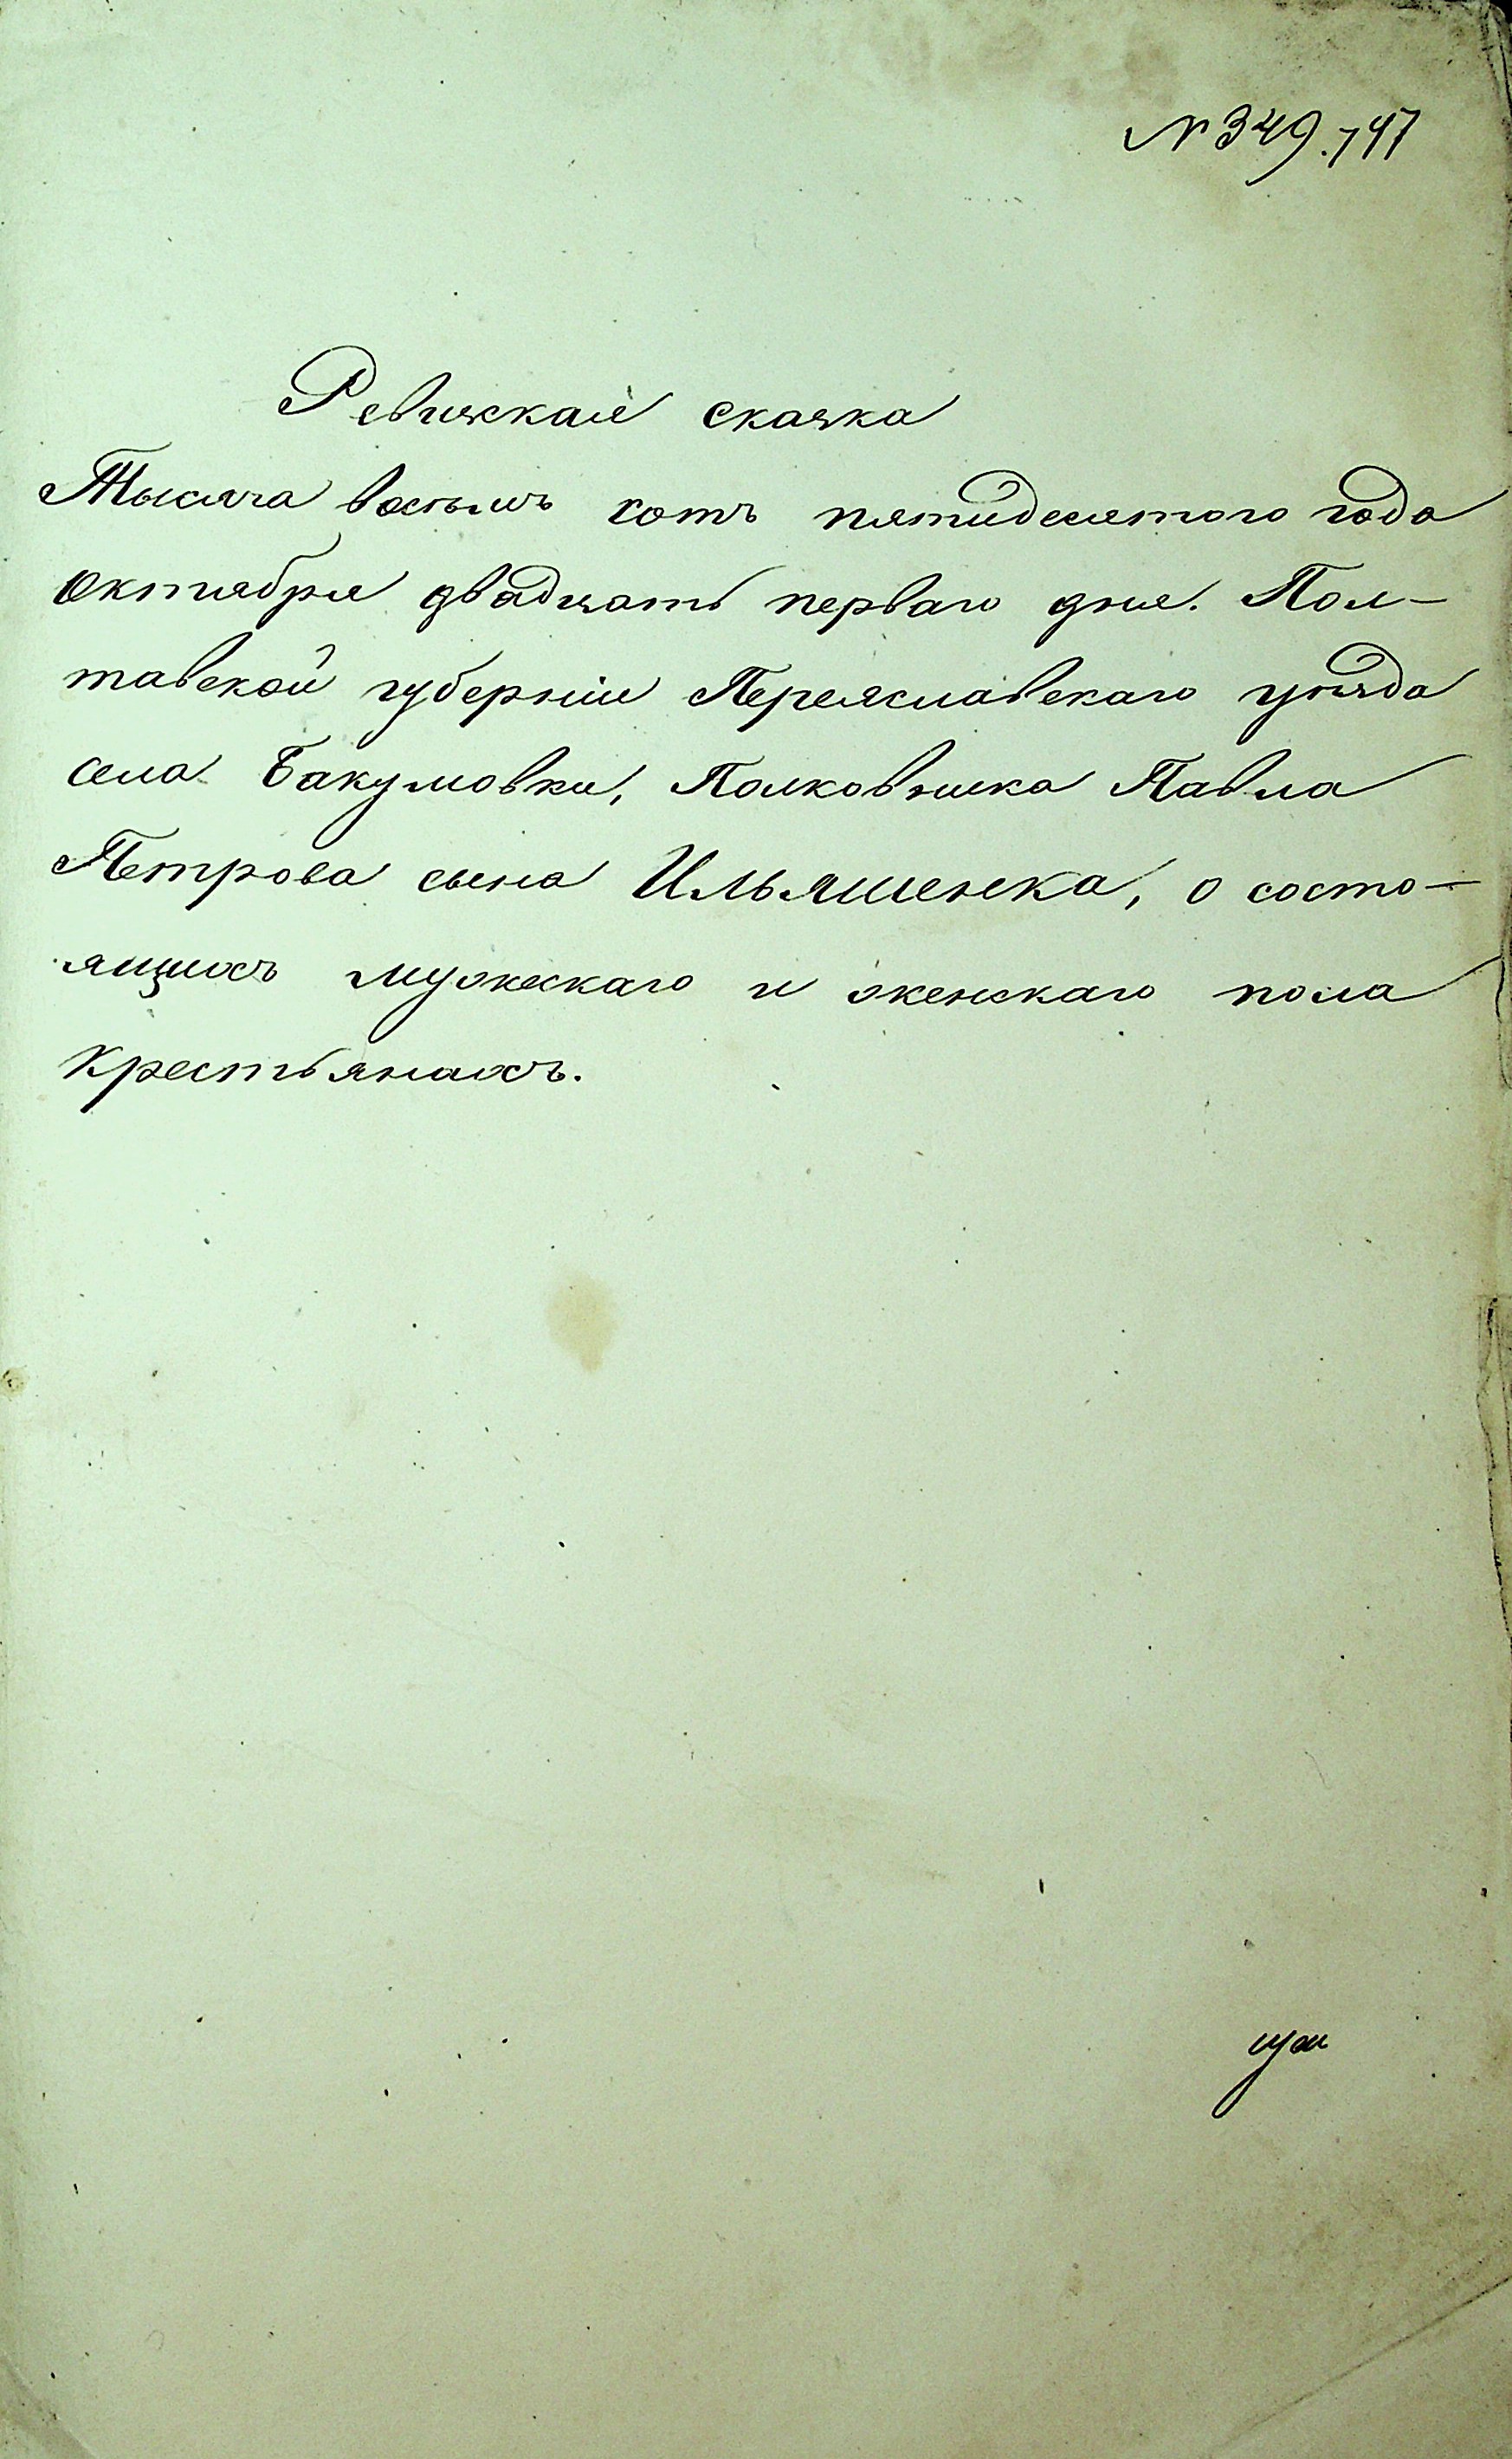 № 349. 747
Ревизская сказка
Тысяча восемь сотъ пятидесятого года
Октября двадцать перваго дня. Пол-
тавской губерніи Переяславскаго уѣзда
села Бакумовки, Полковника Павла
Петрова сына Ильяшенка, о состо-
ящихъ мужескаго и женскаго пола
крестьянахъ.